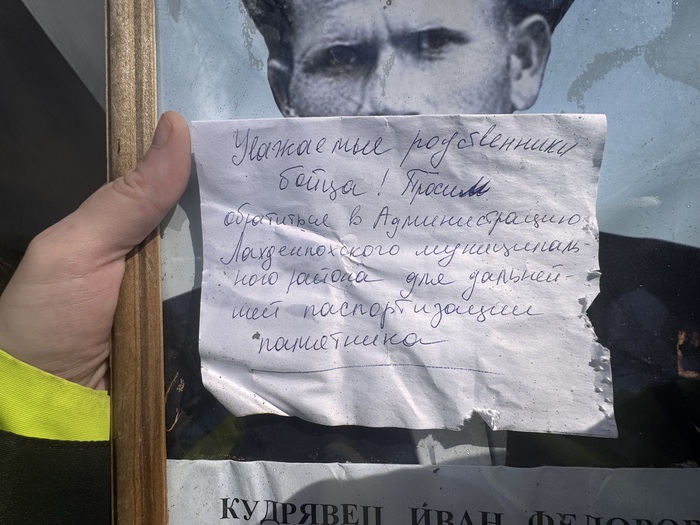 Уважаемые родственники
бойца! Просим
обратиться в Администрацию
Лахденпохского муниципаль-
ного района для дальней-
шей паспортизации
памятника
КУДРЯВЕЦ ИВАН ФЕДОРО